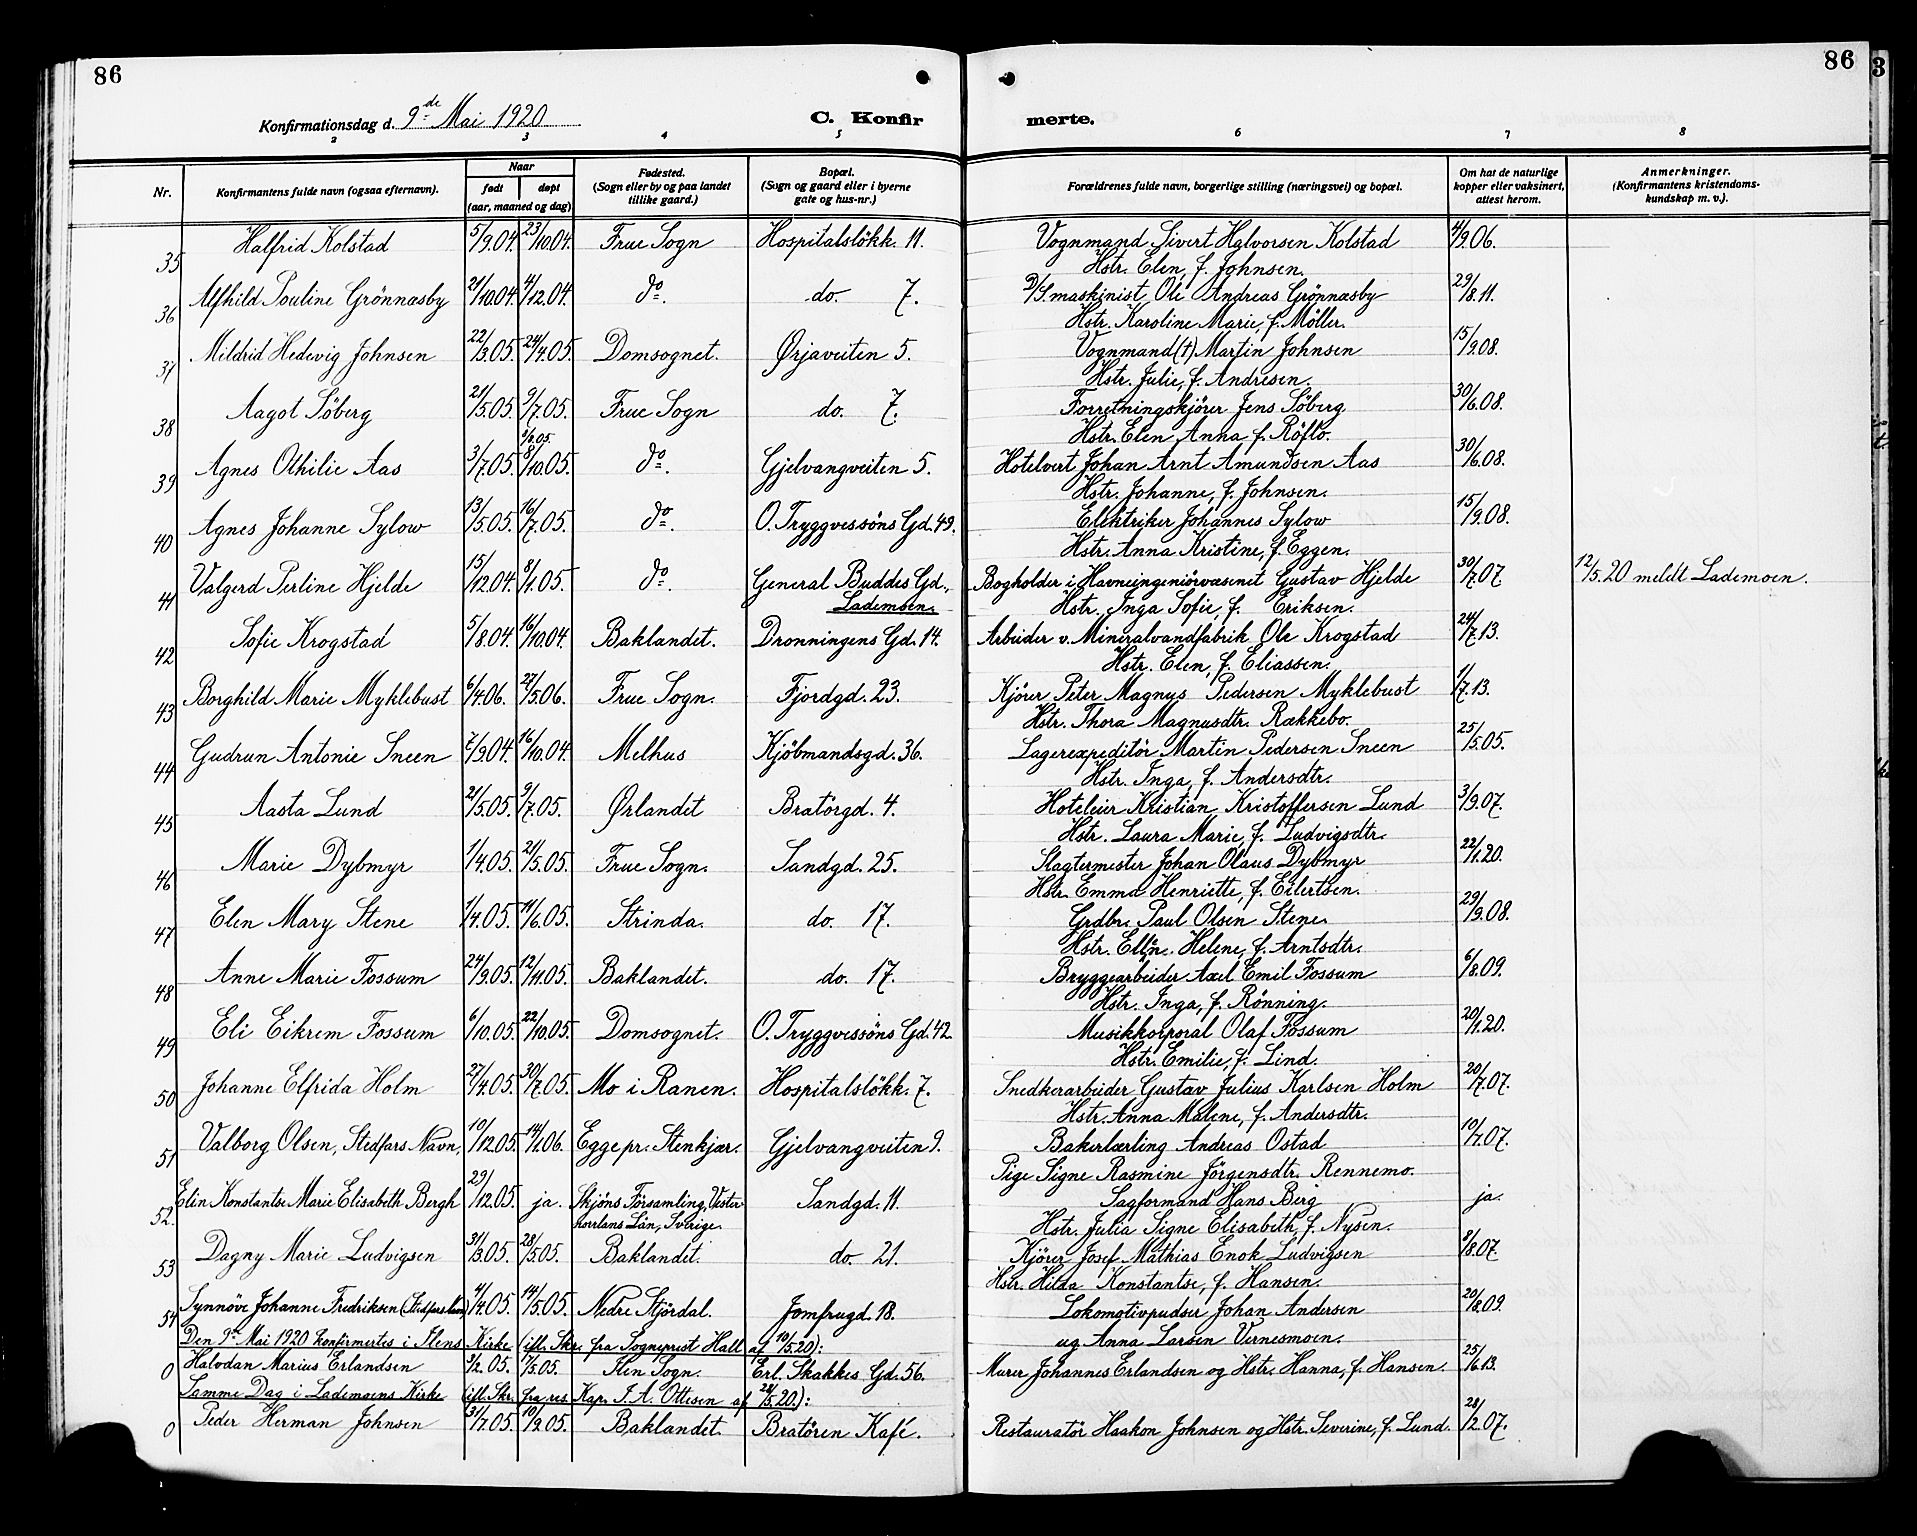 86
86
3
Konfirmationsdag d. 9de Mai 1920
C. Konfirmerte.
2 3 4 5 6 7 8
Nr.
Konfirmantens fulde navn (ogsaa efternavn).
Naar
født døpt
(aar, maaned og dag)
Fødested.
(Sogn eller by og paa landet
tillike gaard.)
Bopæl.
(Sogn og gaard eller i byerne
gate og hus-nr.)
Forældrenes fulde navn, borgerlige stilling (næringsvei) og bopæl.
Om hat de naturlige
kopper eller vaksinert,
attest herom.
Anmerkninger.
(Konfirmantens kristendoms-
kundskap m. v.).
35 Halfrid Kolstad 5/9.04. 23/10.04. Frue Sogn Hospitalsløkk. 11. Vognmand Sivert Halvorsen Kolstad 4/9.06.
Hstr. Elen, f. Johnsen.
36 Alfhild Pouline Grönnæsby 21/10.04. 4/12.04. do. do. 7. D/S.maskinist Ole Andreas Grönnæsby 29/8.11.
Hstr. Karoline Marie, f. Möller.
37 Mildrid Hedevig Johnsen 22/3.05. 24/4.05. Domsognet. Ørjaveiten 5. Vognmand (†) Martin Johnsen 15/9.08.
Hstr. Julie, f. Andresen.
38 Aagot Söberg 21/5.05. 9/7.05. Frue Sogn do. 7. Forretningskjörer Jens Söberg 30/6.08.
Hstr. Elen Anna f. Röflo.
39 Agnes Othilie Aas 3/7.05. 8/10.05. do. Gjelvangveiten 5. Hotelvert Johan Arnt Amundsen Aas 30/6.08.
Hstr. Johanne, f. Johnsen.
40 Agnes Johanne Sylow 13/5.05. 16/7.05. do. O. Tryggvessöns Gd. 49. Elektriker Johannes Sylow 15/9.08.
Hstr. Anna Kristine, f. Eggen.
41 Valgerd Perline Hjelde 15/12.04. 8/1.05. do. General Buddes Gd., Bogholder i Havneingeniörvæsenet Gustav Hjelde 30/7.07. 12/5.20 meldt Lademoen.
Lademoen. Hstr. Inga Sofie, f. Eriksen.
42 Sofie Krogstad 5/8.04. 16/10.04. Baklandet. Dronningens Gd. 14. Arbeider v. Mineralvandfabrik Ole Krogstad 24/7.13.
Hstr. Elen, f. Eliassen.
43 Borghild Marie Myklebust 6/4.06. 27/5.06. Frue Sogn. Fjordgd. 23. Kjörer Peter Magnus Pedersen Myklebust 1/7.13.
Hstr. Thora Magnusdtr. Rækkebo.
44 Gudrun Antonie Sneen 7/9.04. 16/10.04. Melhus Kjöbmandsgd. 36. Lagerexpeditör Martin Pedersen Sneen 25/5.05.
Hstr. Inga, f. Andersdtr.
45 Aasta Lund 21/5.05. 9/7.05. Ørlandet Bratörgd. 4. Hoteleier Kristian Kristoffersen Lund 3/9.07.
Hstr. Laura Marie, f. Ludvigsdtr.
46 Marie Dybmyr 1/4.05. 21/5.05. Frue Sogn. Sandgd. 25. Slagtermester Johan Olaus Dybmyr 22/1.20.
Hstr. Emma Henriette, f. Eilertsen.
47 Elen Mary Stene 1/4.05. 11/6.05. Strinda. do. 17. Grdbr. Paul Olsen Stene. 29/9.08.
Hstr. Ellen Helene, f. Arntsdtr.
48 Anne Marie Fossum 24/9.05. 12/11.05. Baklandet. do. 17. Bryggearbeider Axel Emil Fossum 6/8.09.
Hstr. Inga, f. Rönning.
49 Eli Eikrem Fossum 6/10.05. 22/10.05. Domsognet. O. Tryggvessöns Gd. 42. Musikkorporal Olaf Fossum 20/1.20.
Hstr. Emilie, f. Lind.
50 Johanne Elfrida Holm 27/4.05. 30/7.05. Mo i Ranen. Hospitalsløkk. 7. Snedkerarbeider Gustav Julius Karlsen Holm 20/7.07.
Hstr. Anna Malene, f. Andersdtr.
51 Valborg Olsen, Stedfars Navn, 10/12.05. 14/1.06. Egge pr. Stenkjær. Gjelvangveiten 9. Bakerlærling Andreas Ostad 10/7.07.
Pige Signe Rasmine Jörgensdtr. Rennemo.
52. Elin Konstantse Marie Elisabeth Bergh 29/12.05. ja. Skjöns Församling, Vester- Sandgd. 11. Sagformand Hans Berg ja.
norrlans Län, Sverige. Hstr. Julia Signe Elisabeth, f. Nysen.
53 Dagny Marie Ludvigsen 31/3.05. 28/5.05. Baklandet. do. 21. Kjörer Josef Mathias Enok Ludvigsen 8/8.07.
Hstr. Hilda Konstantse, f. Hansen.
54 Synnöve Johanne Fredriksen (Stedfars Navn) 4/4.05. 14/5.05. Nedre Stjördal. Jomfrugd. 18. Lokomotivpudser Johan Andersen 20/8.09.
ug Anna Larsen Vernesmoen.
Den 9de Mai 1920 konfirmertes i Ilens Kirke (ifl. Skr. fra Sogneprest Hall af 10/5.20):
0 Halvdan Marius Erlandsen 9/2.05. 7/5.05. Ilen Sogn. Erl. Skakkes Gd. 56. Murer Johannes Erlandsen og Hstr. Hanna, f. Hansen. 25/6.13.
Samme Dag i Lademoens Kirke (ifl. Skr. fra res. Kap. I. A. Ottesen af 28/5.20.):
0 Peder Herman Johnsen 31/7.05. 10/9.05. Baklandet. Bratören Kafé. Restauratör Haakon Johnsen og Hstr. Severine, f. Lund. 28/12.07.